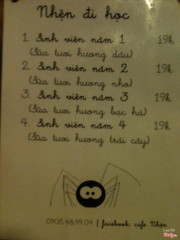 Nhện đi học
1. Sinh viên năm 1 19k
(Sữa tươi hương dâu)
2. Sinh viên năm 2 19k
(Sữa tươi hương nho)
3. Sinh viên năm 3 19k
(Sữa tươi hương bạc hà)
4. Sinh viên năm 4 19k
(Sữa tươi hương trái cây)
| facebook cafe Nhện